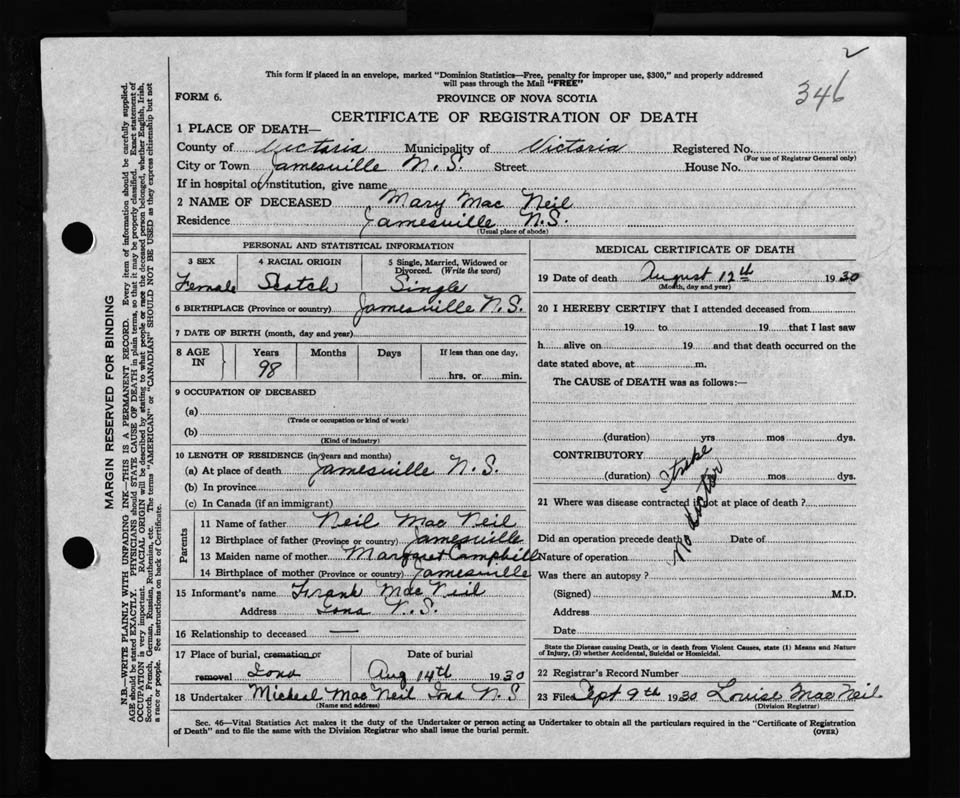 2
This form if placed in an envelope, marked "Dominion Statistics—Free, penalty for improper use, $300," and properly addressed
will pass through the Mail "FREE"
346
FORM 6. PROVINCE OF NOVA SCOTIA
CERTIFICATE OF REGISTRATION OF DEATH
1 PLACE OF DEATH—
County of Victoria Municipality of Victoria Registered No.
(For use of Registrar General only)
City or Town Jamesville N.S. Street House No.
If in hospital or institution, give name
2 NAME OF DECEASED Mary Mac Neil
Residence Jamesville N.S.
(Usual place of abode)
PERSONAL AND STATISTICAL INFORMATION
3 SEX 4 RACIAL ORIGIN 5 Single, Married, Widowed or
Divorced. (Write the word)
Female Scotch Single
6 BIRTHPLACE (Province or country) Jamesville N.S.
7 DATE OF BIRTH (month, day and year)
8 AGE IN Years Months Days If less than one day,
98 hrs. or min.
9 OCCUPATION OF DECEASED
(a)
(Trade or occupation or kind of work)
(b)
(Kind of industry)
10 LENGTH OF RESIDENCE (in years and months)
(a) At place of death Jamesville N.S.
(b) In province
(c) In Canada (if an immigrant)
Parents
11 Name of father Neil Mac Neil
12 Birthplace of father (Province or country) Jamesville
13 Maiden name of mother Margaret Campbill
14 Birthplace of mother (Province or country) Jamesville
15 Informant's name Frank Mac Neil
Address Iona N.S.
16 Relationship to deceased —
17 Place of burial, cremation or Date of burial
removal Iona Aug 14th 1930
18 Undertaker Micheal Mac Neil Iona N S
(Name and address)
MEDICAL CERTIFICATE OF DEATH
19 Date of death August 12th 1930
(Month, day and year)
20 I HEREBY CERTIFY that I attended deceased from
19 to 19 that I last saw
h alive on 19 and that death occurred on the
date stated above, at m.
The CAUSE of DEATH was as follows:—
(duration) yrs mos dys.
CONTRIBUTORY
(duration) mos dys.
Stroke
No doctor
21 Where was disease contracted if not at place of death?
Did an operation precede death Date of
Nature of operation
Was there an autopsy?
(Signed) M.D.
Address
Date
State the Disease causing Death, or in death from Violent Causes, state (1) Means and Nature
of Injury, (2) whether Accidental, Suicidal or Homicidal.
22 Registrar's Record Number
23 Filed Sept 9th 1930 Louise Mac Neil
(Division Registrar)
Sec. 46—Vital Statistics Act makes it the duty of the Undertaker or person acting as Undertaker to obtain all the particulars required in the "Certificate of Registration
of Death" and to file the same with the Division Registrar who shall issue the burial permit.
(OVER)
MARGIN RESERVED FOR BINDING
N.B.—WRITE PLAINLY WITH UNFADING INK—THIS IS A PERMANENT RECORD. Every item of information should be carefully supplied.
AGE should be stated EXACTLY. PHYSICIANS should STATE CAUSE OF DEATH in plain terms, so that it may be properly classified. Exact statement of
OCCUPATION is very important. RACIAL ORIGIN will be described by stating to what people or race the deceased person belonged, whether English, Irish,
Scotch, French, German, Russian, Ruthenian, etc. The terms "AMERICAN" or "CANADIAN" SHOULD NOT BE USED as they express citizenship but not
a race or people. See instructions on back of Certificate.